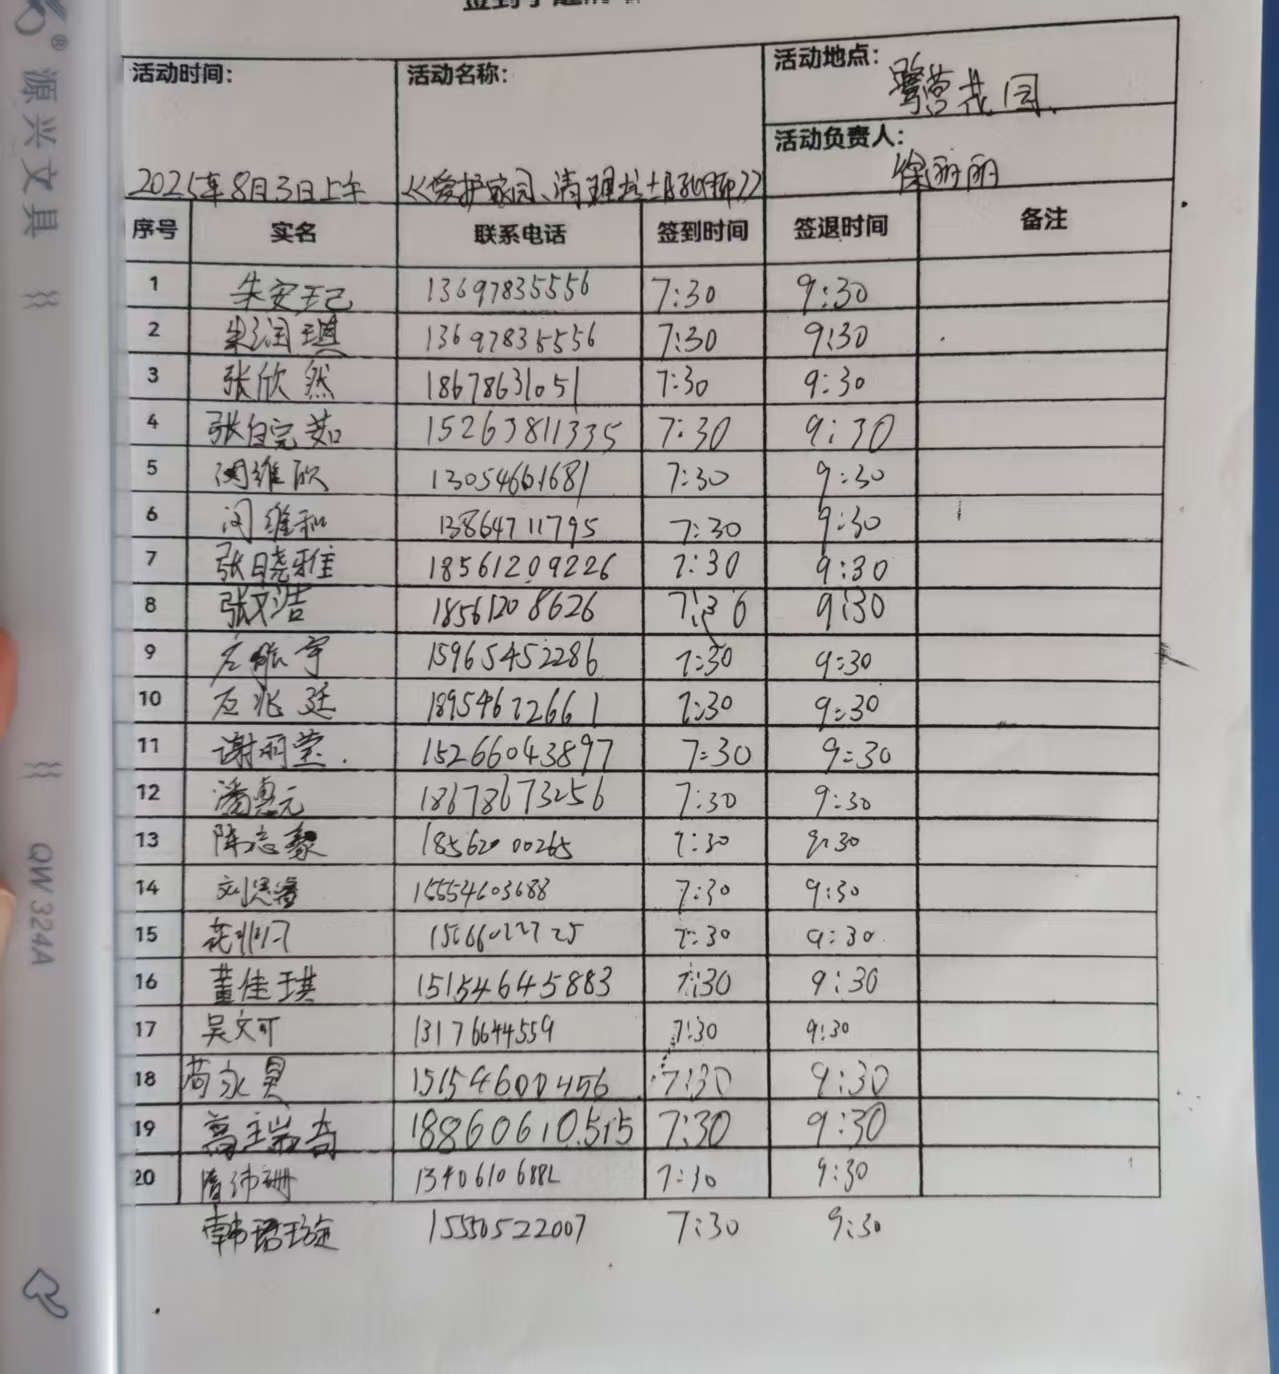 源兴文具
QW 324A
活动时间： 2025年8月3日上午
活动名称： 《爱护家园、清理
活动地点： 花园
活动负责人： 徐丽丽
序号 实名 联系电话 签到时间 签退时间 备注
1 朱安 13697835556 7:30 9:30
2 朱润琪 13697835556 7:30 9:30
3 张欣然 18678631051 7:30 9:30
4 张 茹 15263811335 7:30 9:30
5 闵维欣 13054661681 7:30 9:30
6 闵维和 13864711795 7:30 9:30
7 张晓雅 18561209226 7:30 9:30
8 张文洁 18561208626 7:30 9:30
9 宇 15965452286 7:30 9:30
10 左兆廷 18954672661 7:30 9:30
11 谢丽莹. 15266043897 7:30 9:30
12 潘惠元 18678673256 7:30 9:30
13 陈志豪 18562000265 7:30 9:30
14 刘思睿 15554603688 7:30 9:30
15 7:30 9:30
16 董佳琪 15154645883 7:30 9:30
17 吴文可 13176644559 7:30 9:30
18 15154600456 7:30 9:30
19 18860610515 7:30 9:30
20 7:30 9:30
韩 15550522007 7:30 9:30